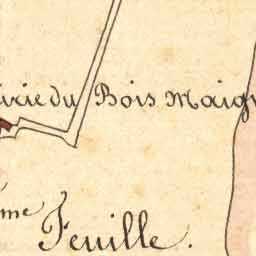 du Bois Maigr
me Feuille.